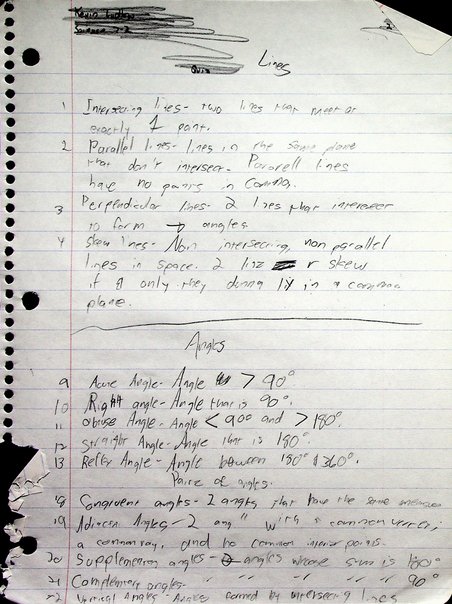 Lines
1 Intersecting lines- two lines that meet at
exactly 1 point.
2 Parallel lines- lines in the same plane
that don't intersect. Pararell lines
have no points in common.
3 Perpendicular lines- 2 lines that intersect
to form angles.
4 Skew lines- Non intersecting, non parallel
lines in space. 2 linz r skew
if & only they dunna ly in a common
plane.
Angles
9 Acute Angle- Angle > 90°.
10 Right angle- Angle that is 90°.
11 Obtuse Angle- Angle < 90° and > 180°.
12 Straight Angle- Angle that is 180°.
13 Reflex Angle- Angle between 180° & 360°.
Pairz of angles.
18 Congruent angles- 2 angles that have the same measure
19 Adjacent Angles- 2 ang " with a common vertex,
a common ray, and no common interior points.
20 Supplementary angles- 2 angles whose sum is 180°
21 Complementary angles- " " " " " 90°
22 Vertical Angles- Angles formed by intersecting lines